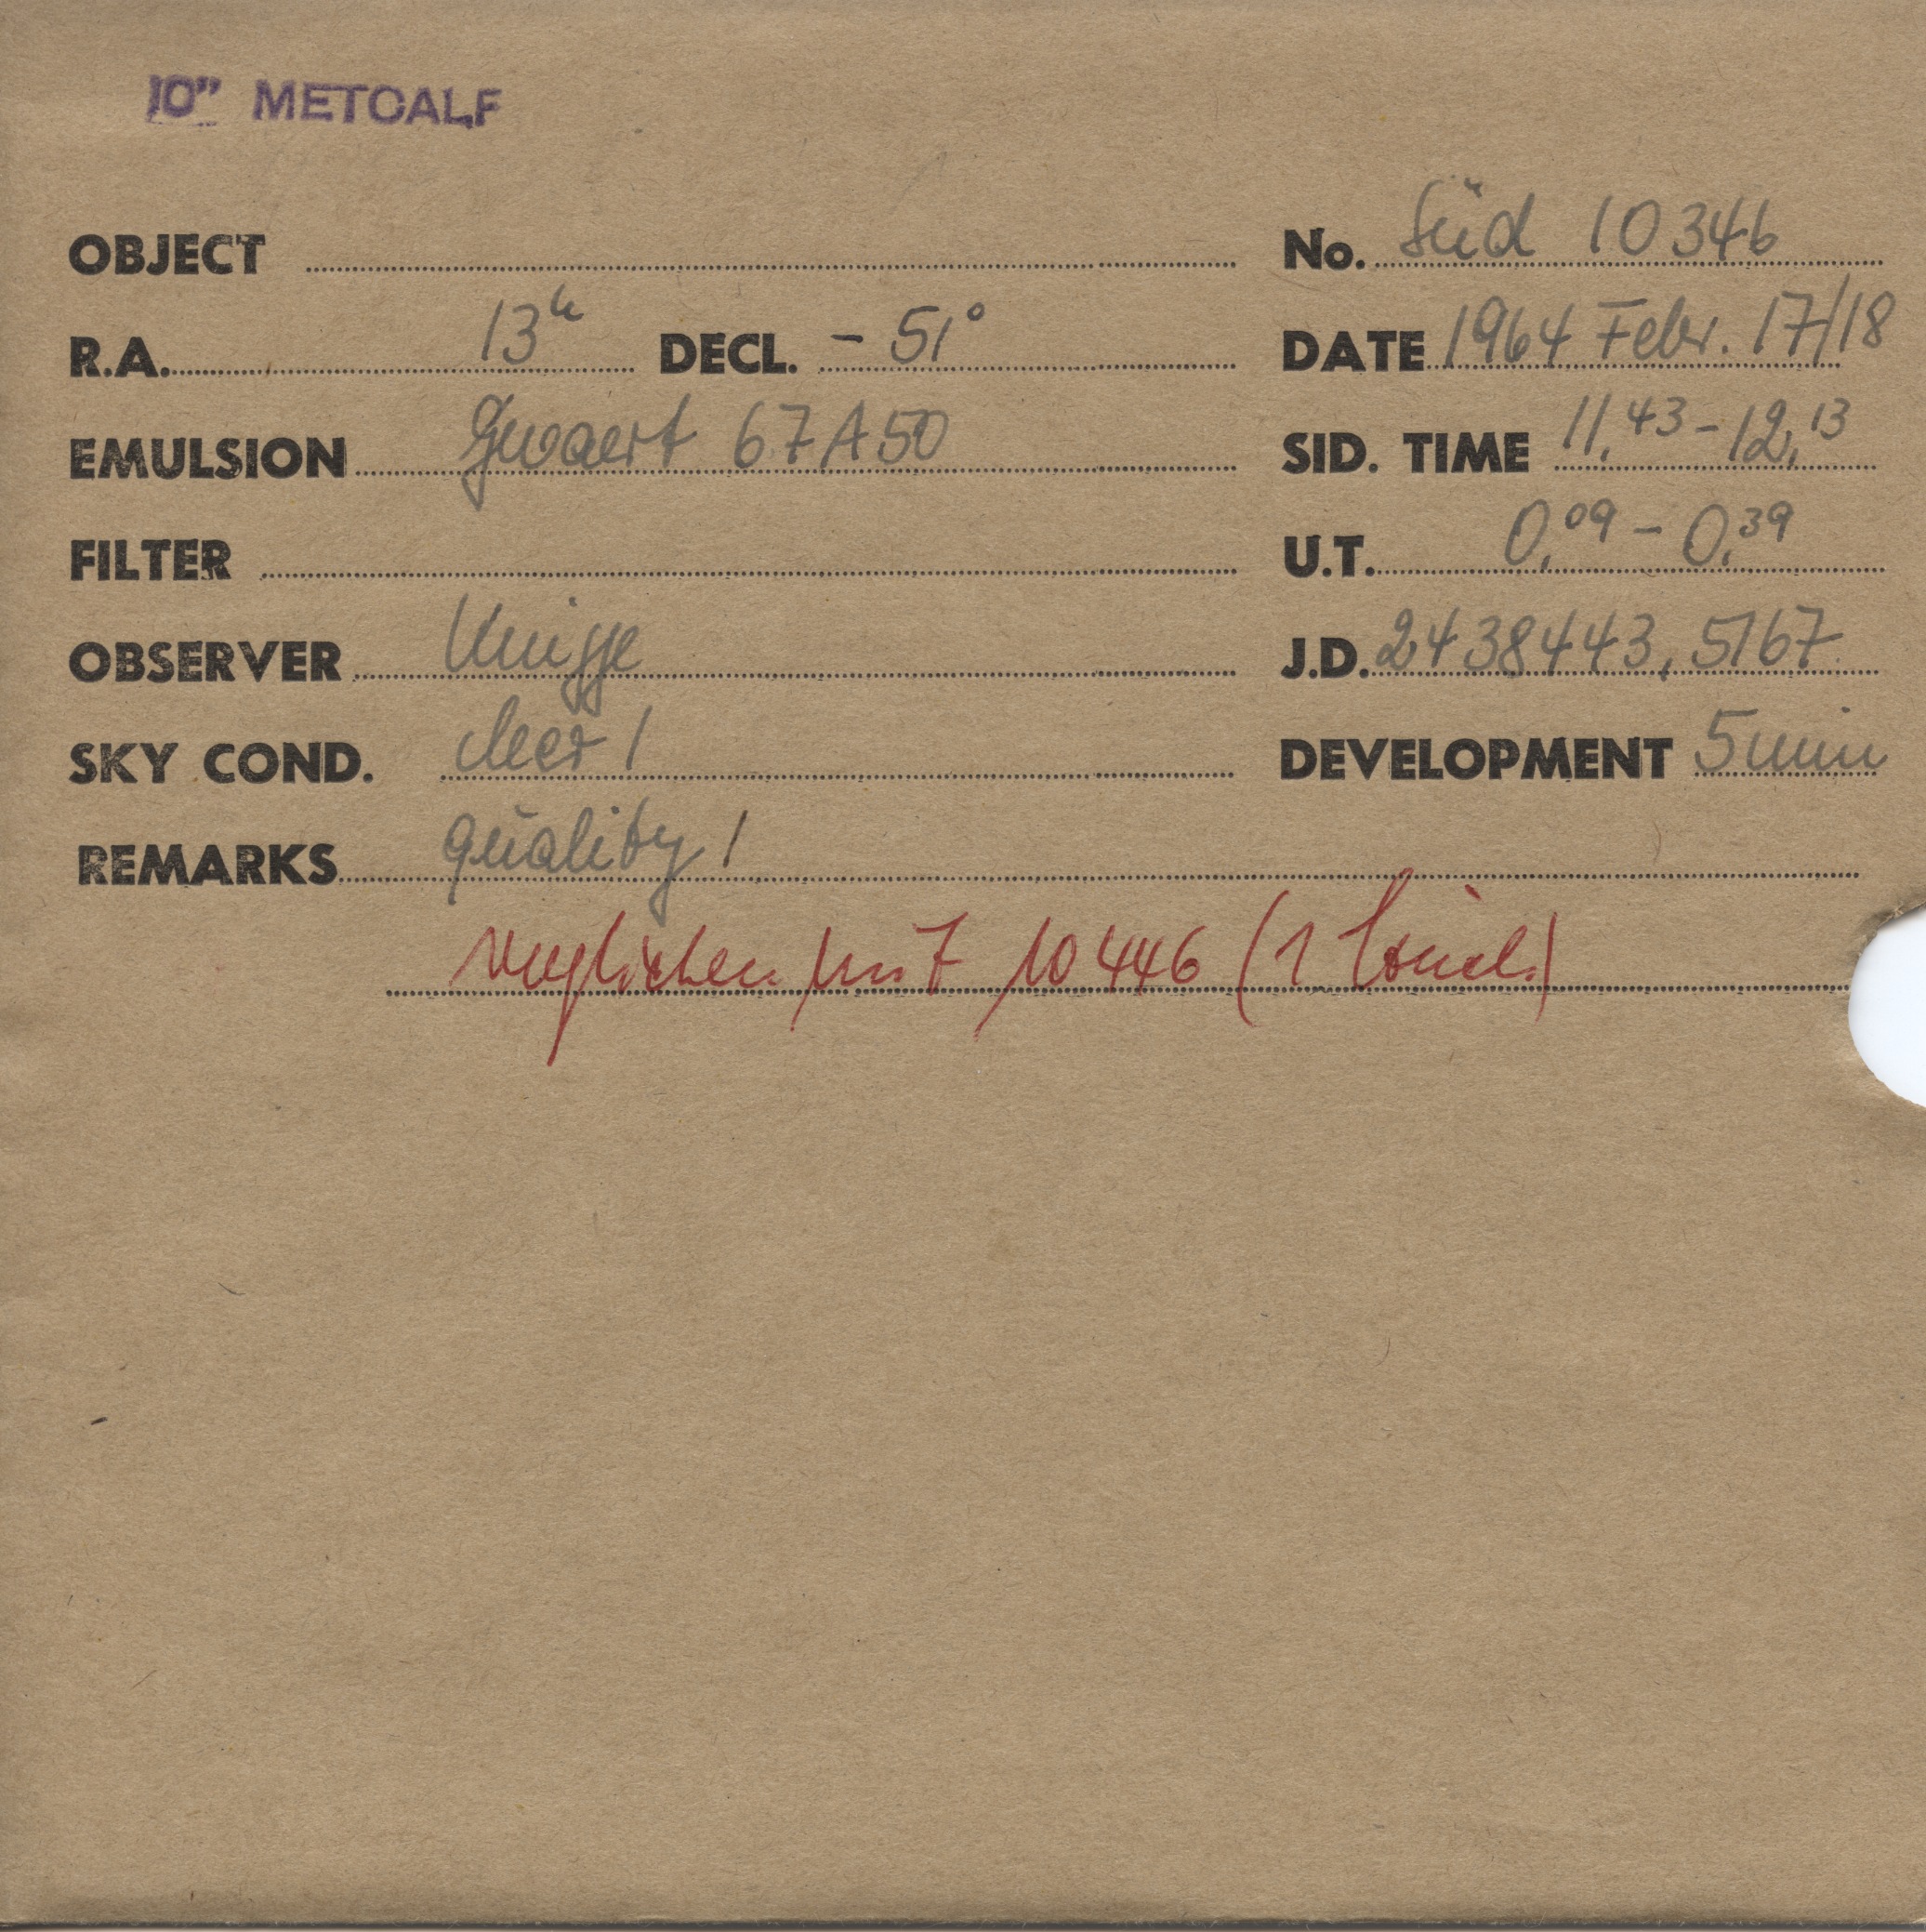 10" METCALF
OBJECT No. Süd 10346
R.A. 13h DECL. - 51° DATE 1964 Febr. 17/18
EMULSION Gevaert 67A50 SID. TIME 11,43 - 12,13
FILTER U.T. 0,09 - 0,39
OBSERVER Knigge J.D. 2438443,5167
SKY COND. cleer 1 DEVELOPMENT 5 min
REMARKS quality 1
verglichen mit 10446 (1